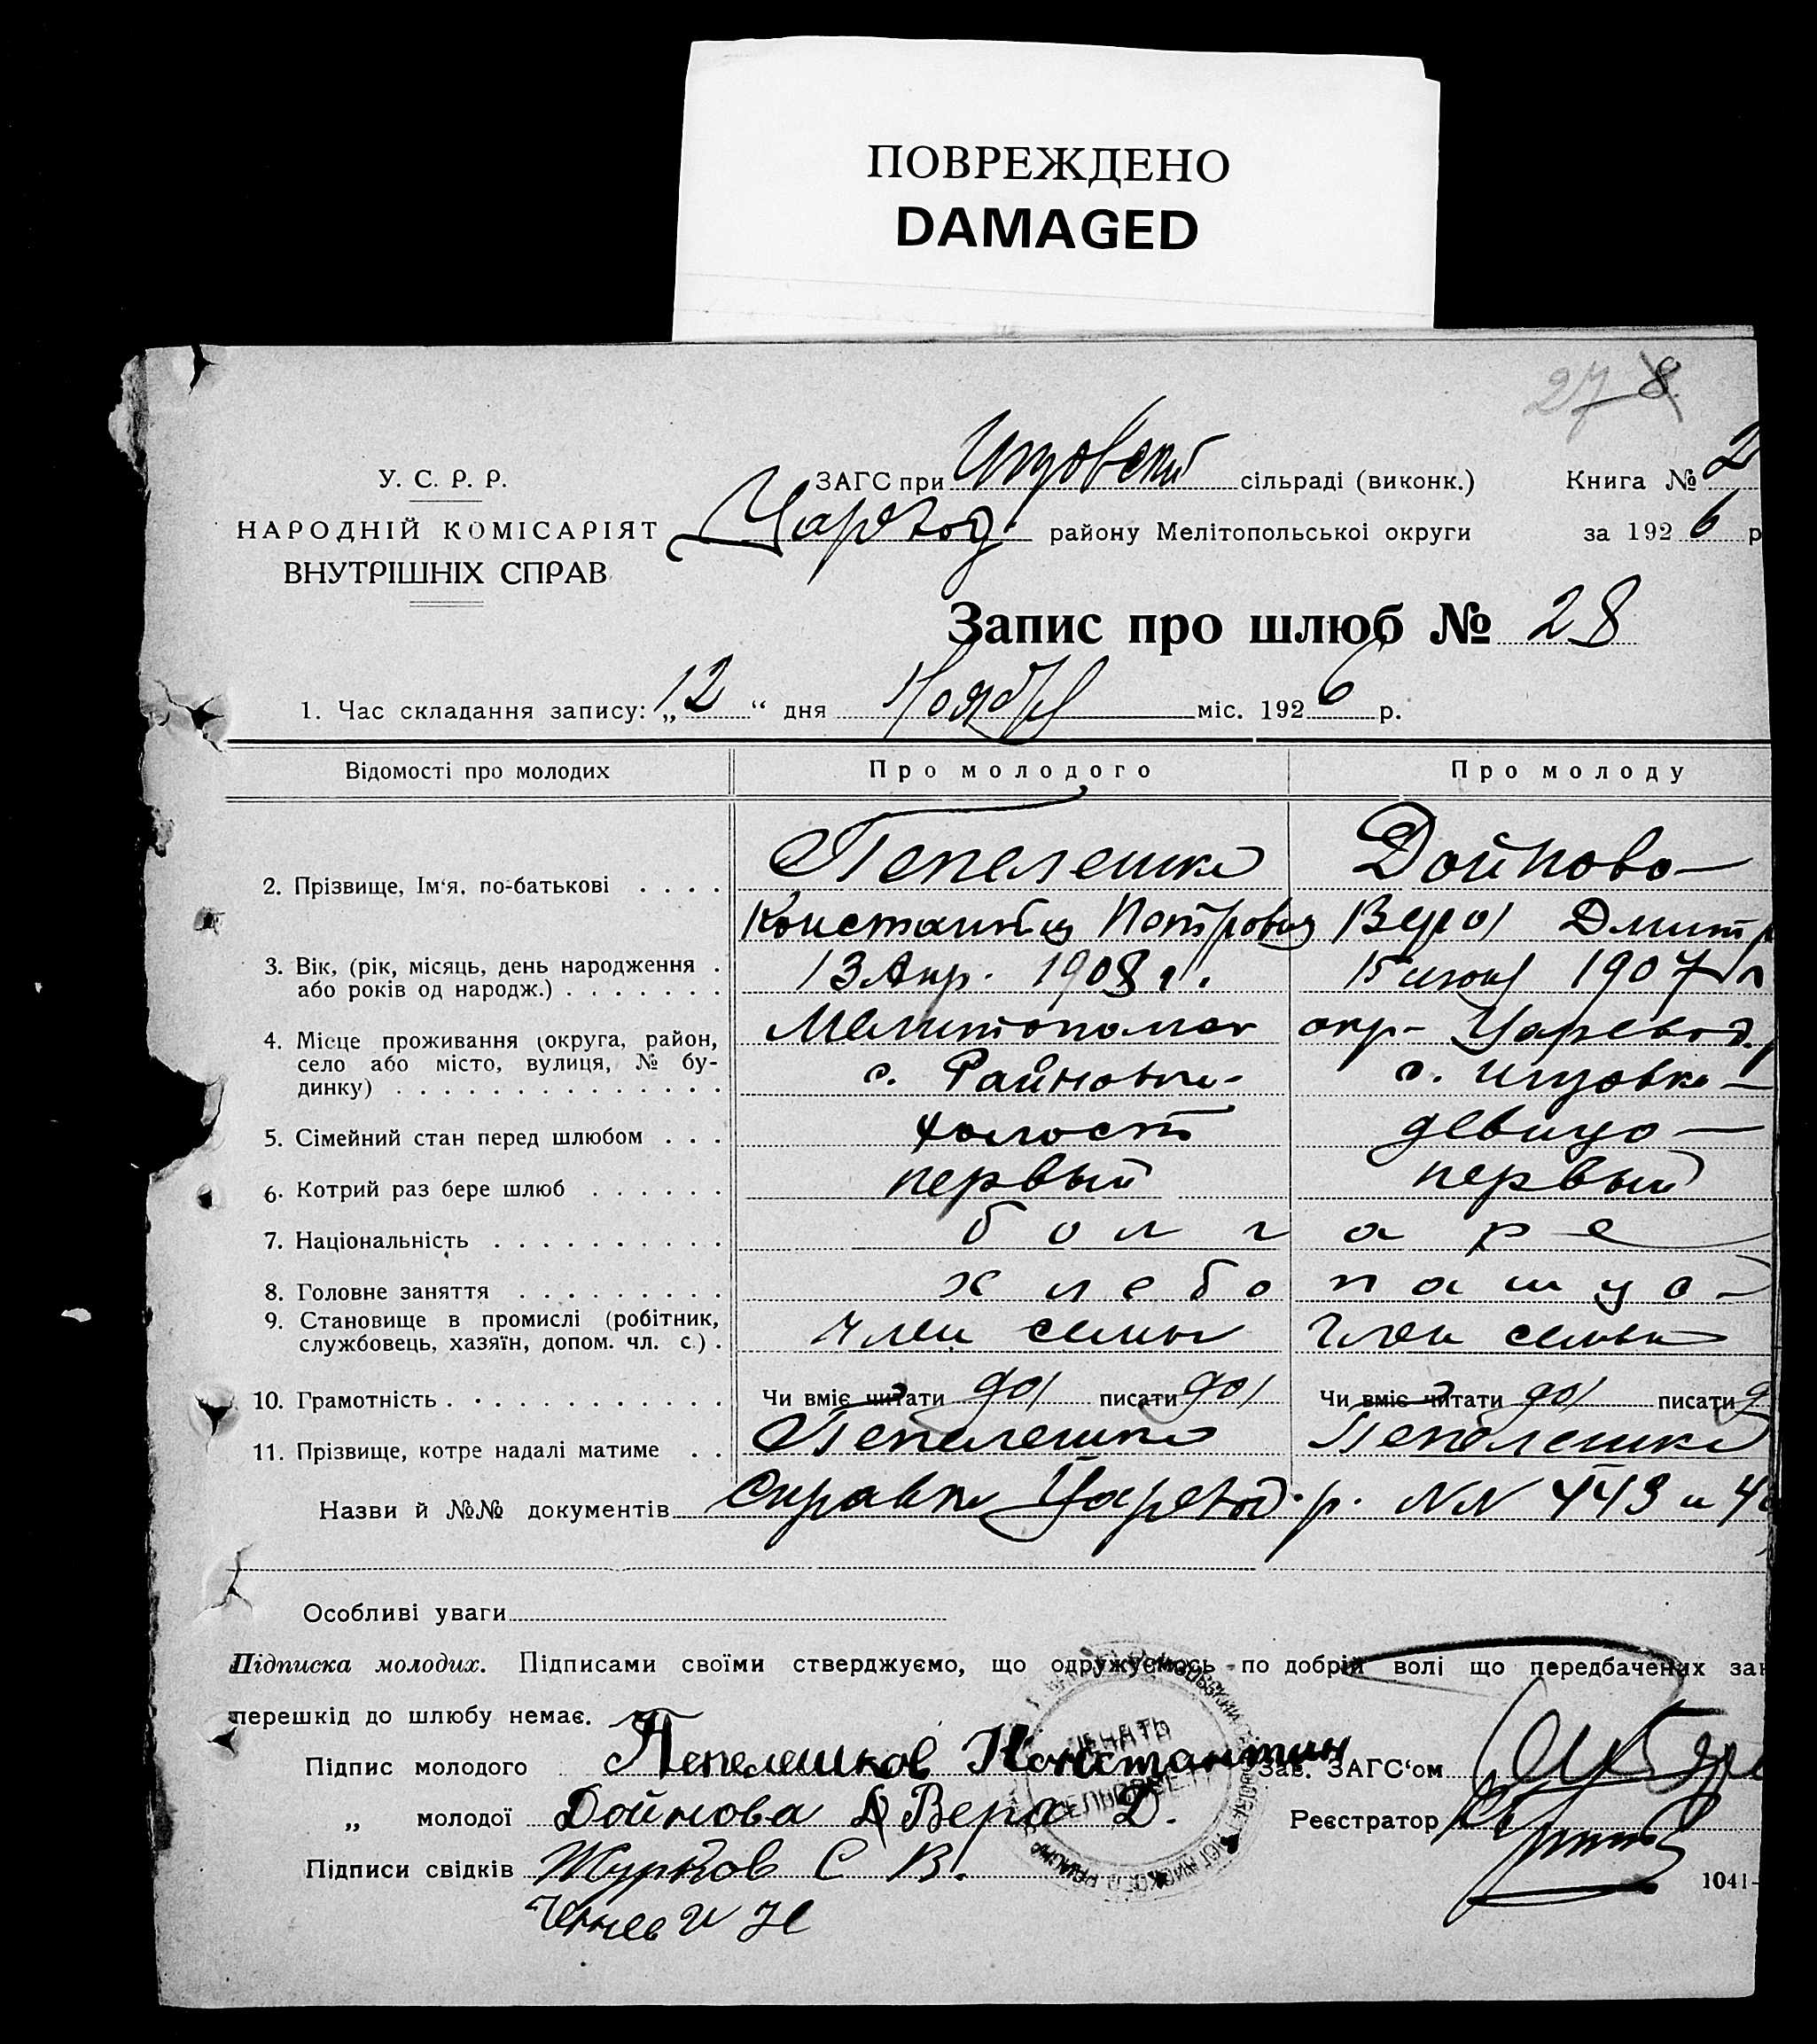 ПОВРЕЖДЕНО
DAMAGED
27 8
У. С. Р. Р.
НАРОДНІЙ КОМІСАРІЯТ
ВНУТРІШНІХ СПРАВ
ЗАГС при сільраді (виконк.) Книга № 2
Царевод. району Мелітопольської округи за 1926 р
Запис про шлюб № 28
1. Час складання запису: „12“ дня Ноября міс. 1926 р.
Відомості про молодих Про молодого Про молоду
2. Прізвище, Ім'я, по-батькові . . . . Пепелешко Дойнова
Константин Петрович Вера Дмитр
3. Вік, (рік, місяць, день народження . 13 Апр. 1908 г. 15 1907 г
або років од народж.) . . . . . . .
4. Місце проживання (округа, район, Мелитополск окр- Царевод. р
село або місто, вулиця, № бу-
динку) . . . . . . . . . . . . . . с. Райновка- с.
5. Сімейний стан перед шлюбом . . . холост девица
6. Котрий раз бере шлюб . . . . . . первый первый
7. Національність . . . . . . . . . . болгаре
8. Головне заняття . . . . . . . . . хлебопашцо
9. Становище в промислі (робітник,
службовець, хазяїн, допом. чл. с.) . член семьи член семьи
10. Грамотність . . . . . . . . . . . . Чи вміє читати да писати да Чи вміє читати да писати д
11. Прізвище, котре надалі матиме . . Пепелешко Пепелешко
Назви й №№ документів Справки Царевод. р. NN 443 и 4
Особливі уваги
Підписка молодих. Підписами своїми стверджуємо, що одружуємось по добрій волі що передбачених зак
перешкід до шлюбу немає.
Підпис молодого Пепелешков Константин Зав. ЗАГС‘ом
„ молодої Дойнова Вера Д. Реєстратор
Підписи свідків Журков С В.
И Н
1041-